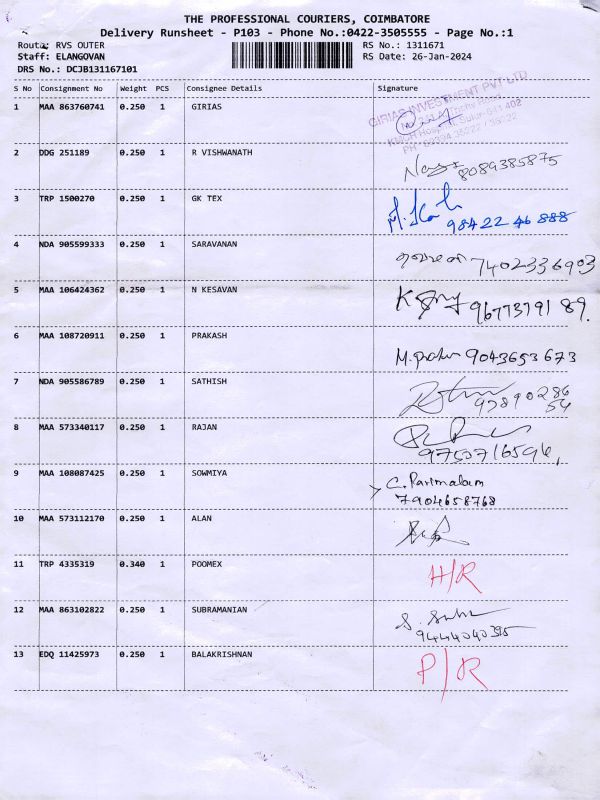 THE PROFESSIONAL COURIERS, COIMBATORE
Delivery Runsheet - P103 - Phone No.:0422-3505555 - Page No.:1
Route: RVS OUTER
RS No.: 1311671
Staff: ELANGOVAN
RS Date: 26-Jan-2024
DRS No.: DCJB131167101
S No Consignment No Weight PCS Consignee Details Signature
1 MAA 863760741 0.250 1 GIRIAS
GIRIAS INVESTMENT PVT LTD
2 DDG 251189 0.250 1 R VISHWANATH
8089385875
3 TRP 1500270 0.250 1 GK TEX
98422 46888
4 NDA 905599333 0.250 1 SARAVANAN
7402336903
5 MAA 106424362 0.250 1 N KESAVAN
9677379189.
6 MAA 108720911 0.250 1 PRAKASH
9043653673
7 NDA 905586789 0.250 1 SATHISH
8 MAA 573340117 0.250 1 RAJAN
9753716594,
9 MAA 108087425 0.250 1 SOWMIYA
C. Parimalam
7904658768
10 MAA 573112170 0.250 1 ALAN
11 TRP 4335319 0.340 1 POOMEX H/R
12 MAA 863102822 0.250 1 SUBRAMANIAN
9444040395
13 EDQ 11425973 0.250 1 BALAKRISHNAN P/R